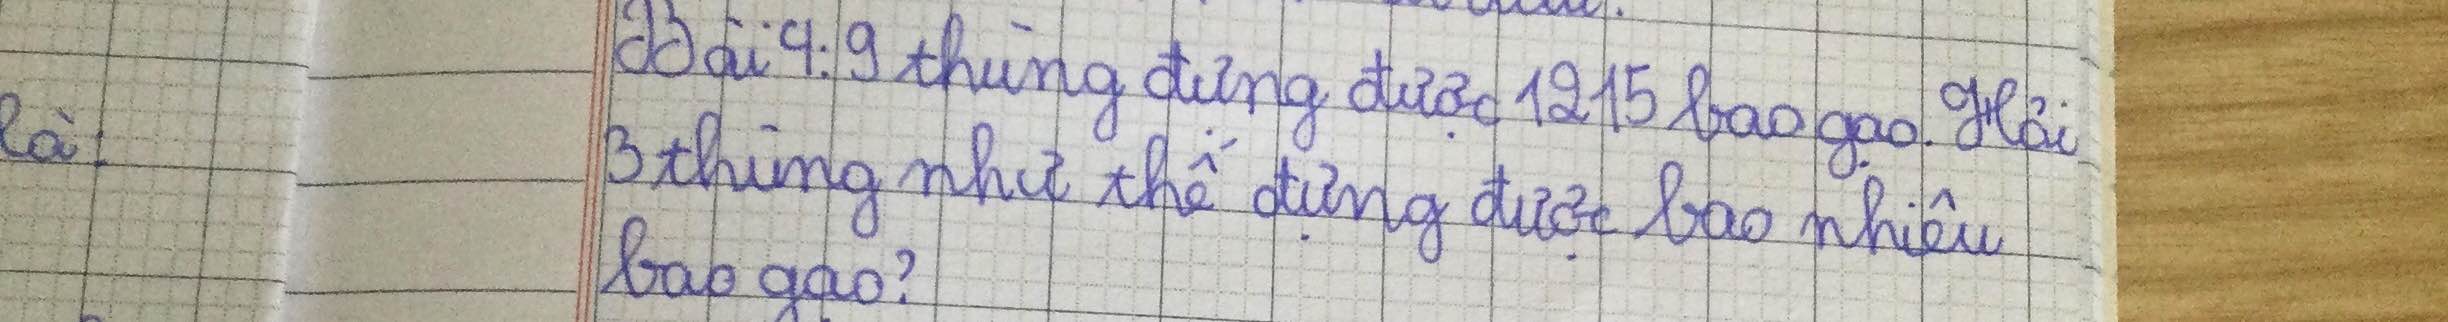 Bài 4: 9 thùng đựng được 1215 bao gạo. Hỏi
là:
3 thùng như thế đựng được bao nhiêu
bao gạo?